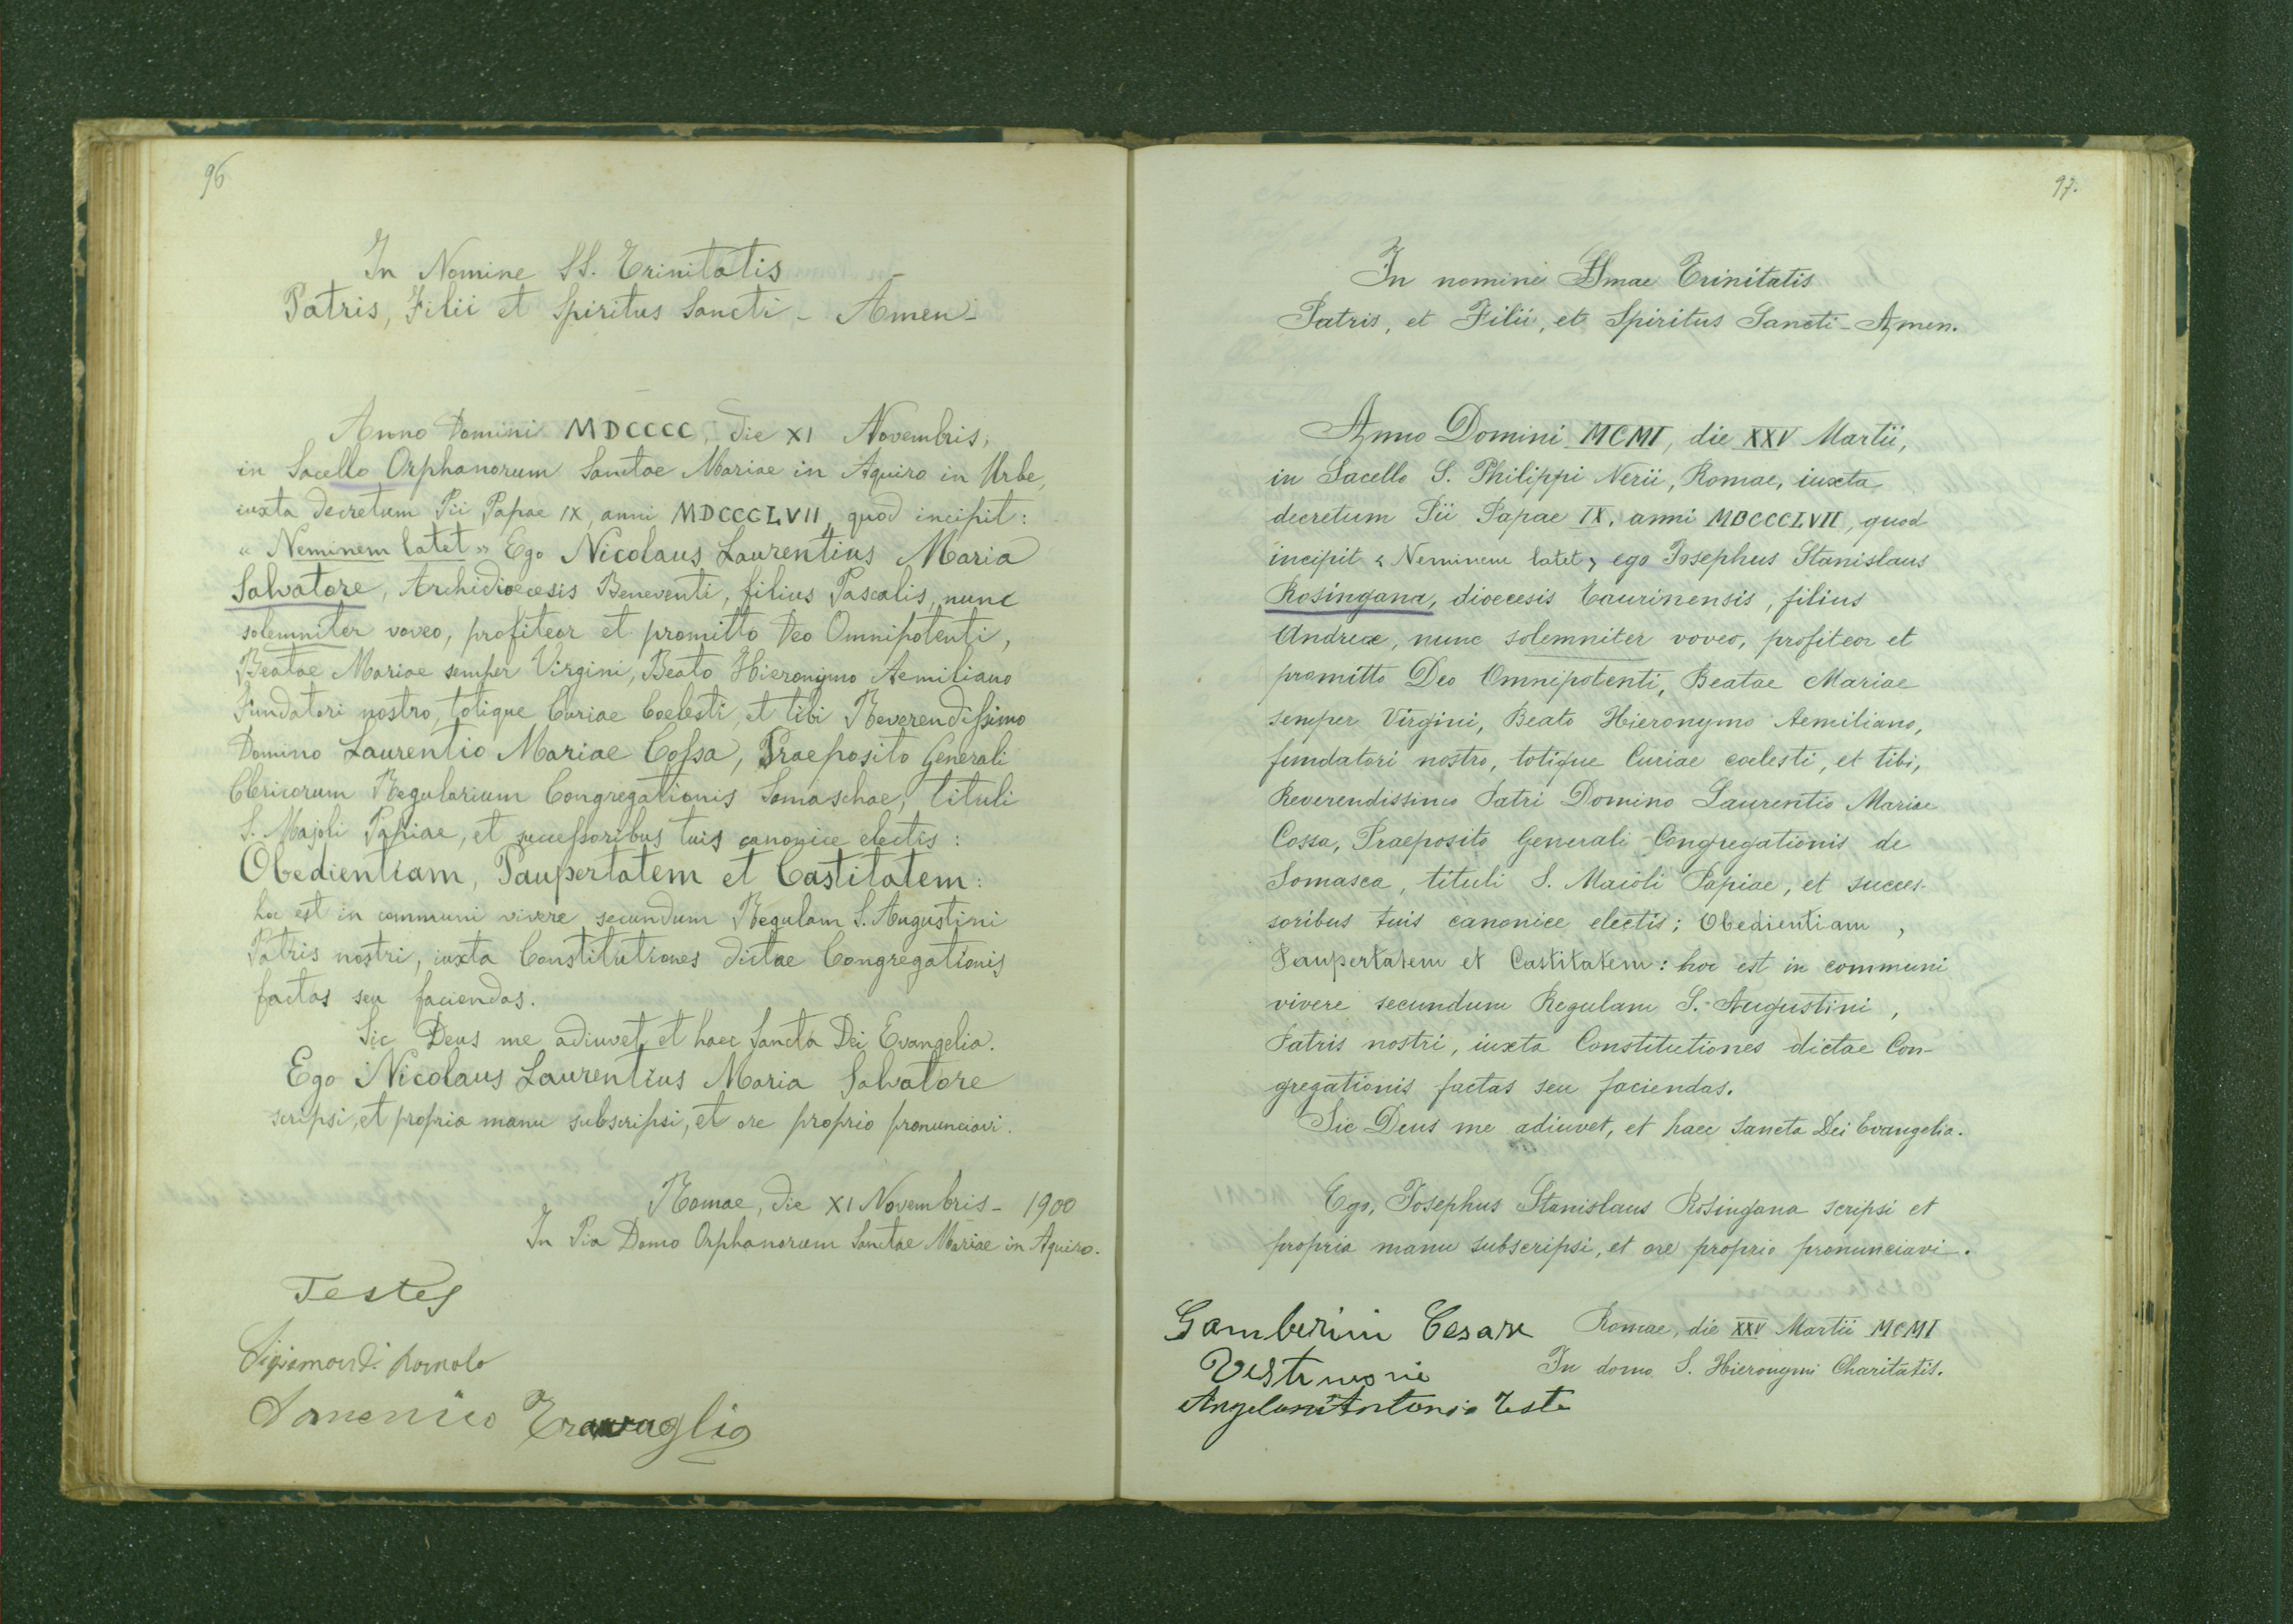 96
In Nomine SS. Trinitatis
Patris, Filii et Spiritus Sancti - Amen -
Anno Domini MDCCCC, die XI Novembris,
in Sacello Orphanorum Sanctae Mariae in Aquiro in Urbe,
iuxta decretum Pii Papae IX, anni MDCCCLVII, quod incipit:
« Neminem latet » Ego Nicolaus Laurentius Maria
Salvatore, Archidioecesis Beneventi, filius Pascalis, nunc
solemniter voveo, profiteor et promitto Deo Omnipotenti,
Beatae Mariae semper Virgini, Beato Hieronymo Aemiliano
Fundatori nostro, totique Curiae Coelesti, et tibi Reverendissimo
Domino Laurentio Mariae Cossa, Praeposito Generali
Clericorum Regularium Congregationis Somaschae, tituli
S. Majoli Papiae, et successoribus tuis canonice electis:
Obedientiam, Paupertatem et Castitatem:
hoc est in communi vivere secundum Regulam S. Augustini
Patris nostri, iuxta Constitutiones dictae Congregationis
factas seu faciendas.
Sic Deus me adiuvet, et haec Sancta Dei Evangelia.
Ego Nicolaus Laurentius Maria Salvatore
scripsi, et propria manu subscripsi, et ore proprio pronunciavi.
Romae, die XI Novembris - 1900
In Pia Domo Orphanorum Sanctae Mariae in Aquiro.
Testes
Sigismondi Romolo
Domenico Travaglio
97.
In nomine SSmae Trinitatis
Patris, et Filii, et Spiritus Sancti - Amen.
Anno Domini MCMI, die XXV Martii,
in Sacello S. Philippi Nerii, Romae, iuxta
decretum Pii Papae IX, anni MDCCCLVII, quod
incipit « Neminem latet » ego Iosephus Stanislaus
Rosingana, dioecesis Taurinensis, filius
Andreae, nunc solemniter voveo, profiteor et
promitto Deo Omnipotenti, Beatae Mariae
semper Virgini, Beato Hieronymo Aemiliano,
fundatori nostro, totique Curiae coelesti, et tibi,
Reverendissimo Patri Domino Laurentio Mariae
Cossa, Praeposito Generali Congregationis de
Somasca, tituli S. Maioli Papiae, et succes-
soribus tuis canonice electis; Obedientiam,
Paupertatem et Castitatem: hoc est in communi
vivere secundum Regulam S. Augustini,
Patris nostri, iuxta Constitutiones dictae Con-
gregationis factas seu faciendas.
Sic Deus me adiuvet, et haec Sancta Dei Evangelia.
Ego, Iosephus Stanislaus Rosingana scripsi et
propria manu subscripsi, et ore proprio pronunciavi.
Gamberini Cesare
Testimonie
Angeloni Antonio Teste
Romae, die XXV Martii MCMI
In domo S. Hieronymi Charitatis.